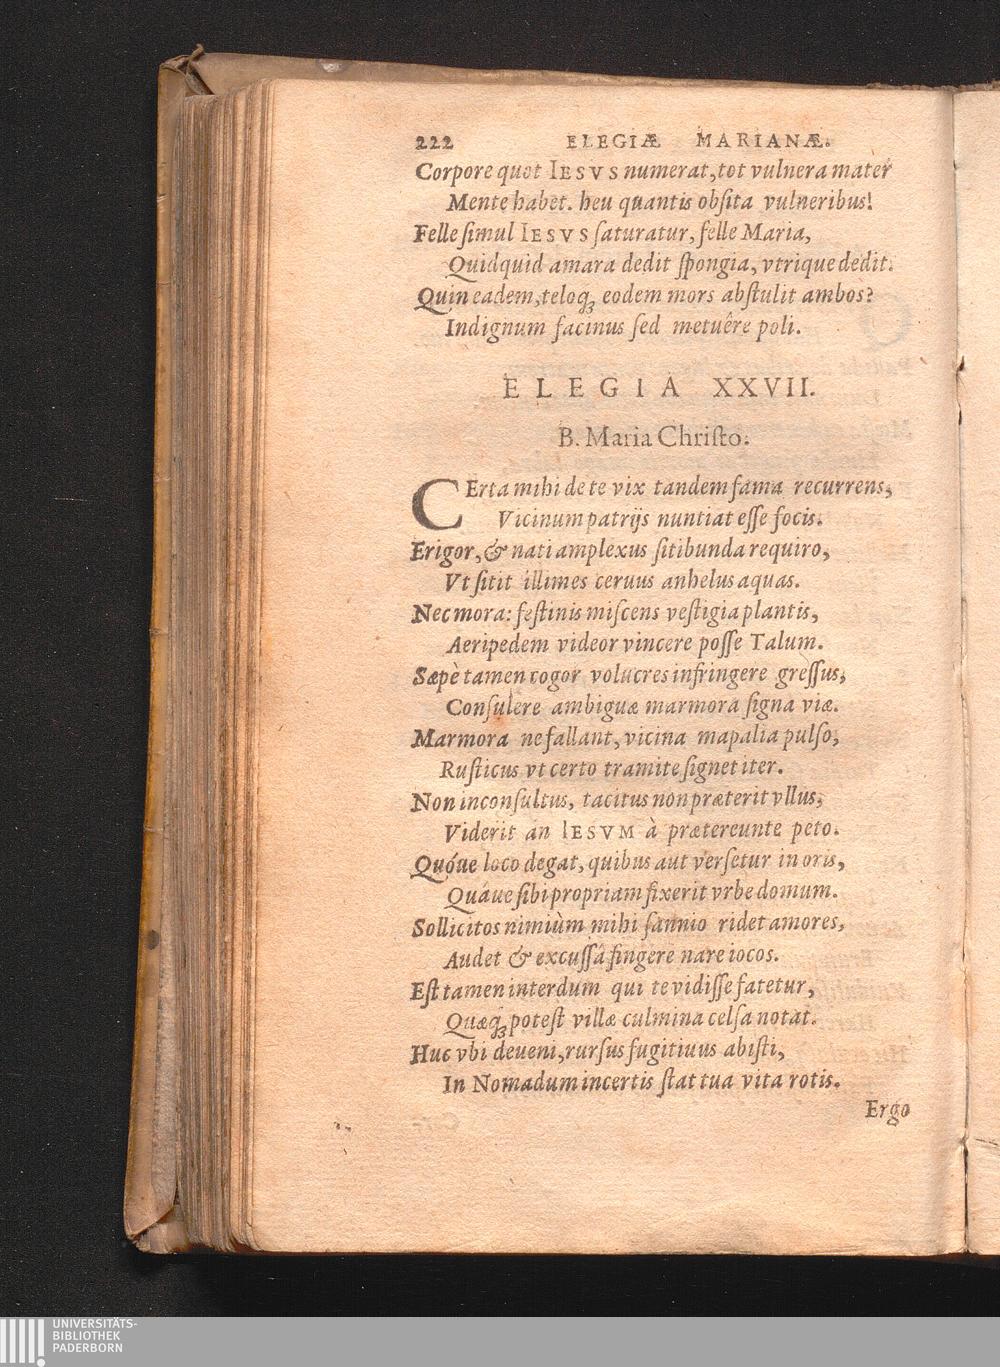 222 ELEGIÆ MARIANÆ.
Corpore quot IESVS numerat, tot vulnera mater
Mente habet. heu quantis obſita vulneribus!
Felle ſimul IESVS ſaturatur, felle Maria,
Quidquid amara dedit ſpongia, vtrique dedit.
Quin eadem, teloq; eodem mors abſtulit ambos?
Indignum facinus ſed metuêre poli.
ELEGIA XXVII.
B. Maria Chriſto.
CErta mihi de te vix tandem fama recurrens,
Vicinum patrijs nuntiat eſſe focis.
Erigor, & nati amplexus ſitibunda requiro,
Vt ſitit illimes ceruus anhelus aquas.
Nec mora: feſtinis miſcens veſtigia plantis,
Aeripedem videor vincere poſſe Talum.
Sæpè tamen cogor volucres infringere greſſus,
Conſulere ambiguæ marmora ſigna viæ.
Marmora ne fallant, vicina mapalia pulſo,
Ruſticus vt certo tramite ſignet iter.
Non inconſultus, tacitus non præterit vllus,
Viderit an IESVM à prætereunte peto.
Quóue loco degat, quibus aut verſetur in oris,
Quáue ſibi propriam fixerit vrbe domum.
Sollicitos nimiùm mihi ſannio ridet amores,
Audet & excuſſâ fingere nare iocos.
Eſt tamen interdum qui te vidiſſe fatetur,
Quæq; poteſt villæ culmina celſa notat.
Huc vbi deueni, rurſus fugitiuus abiſti,
In Nomadum incertis ſtat tua vita rotis.
Ergo
UNIVERSITÄTS-
BIBLIOTHEK
PADERBORN